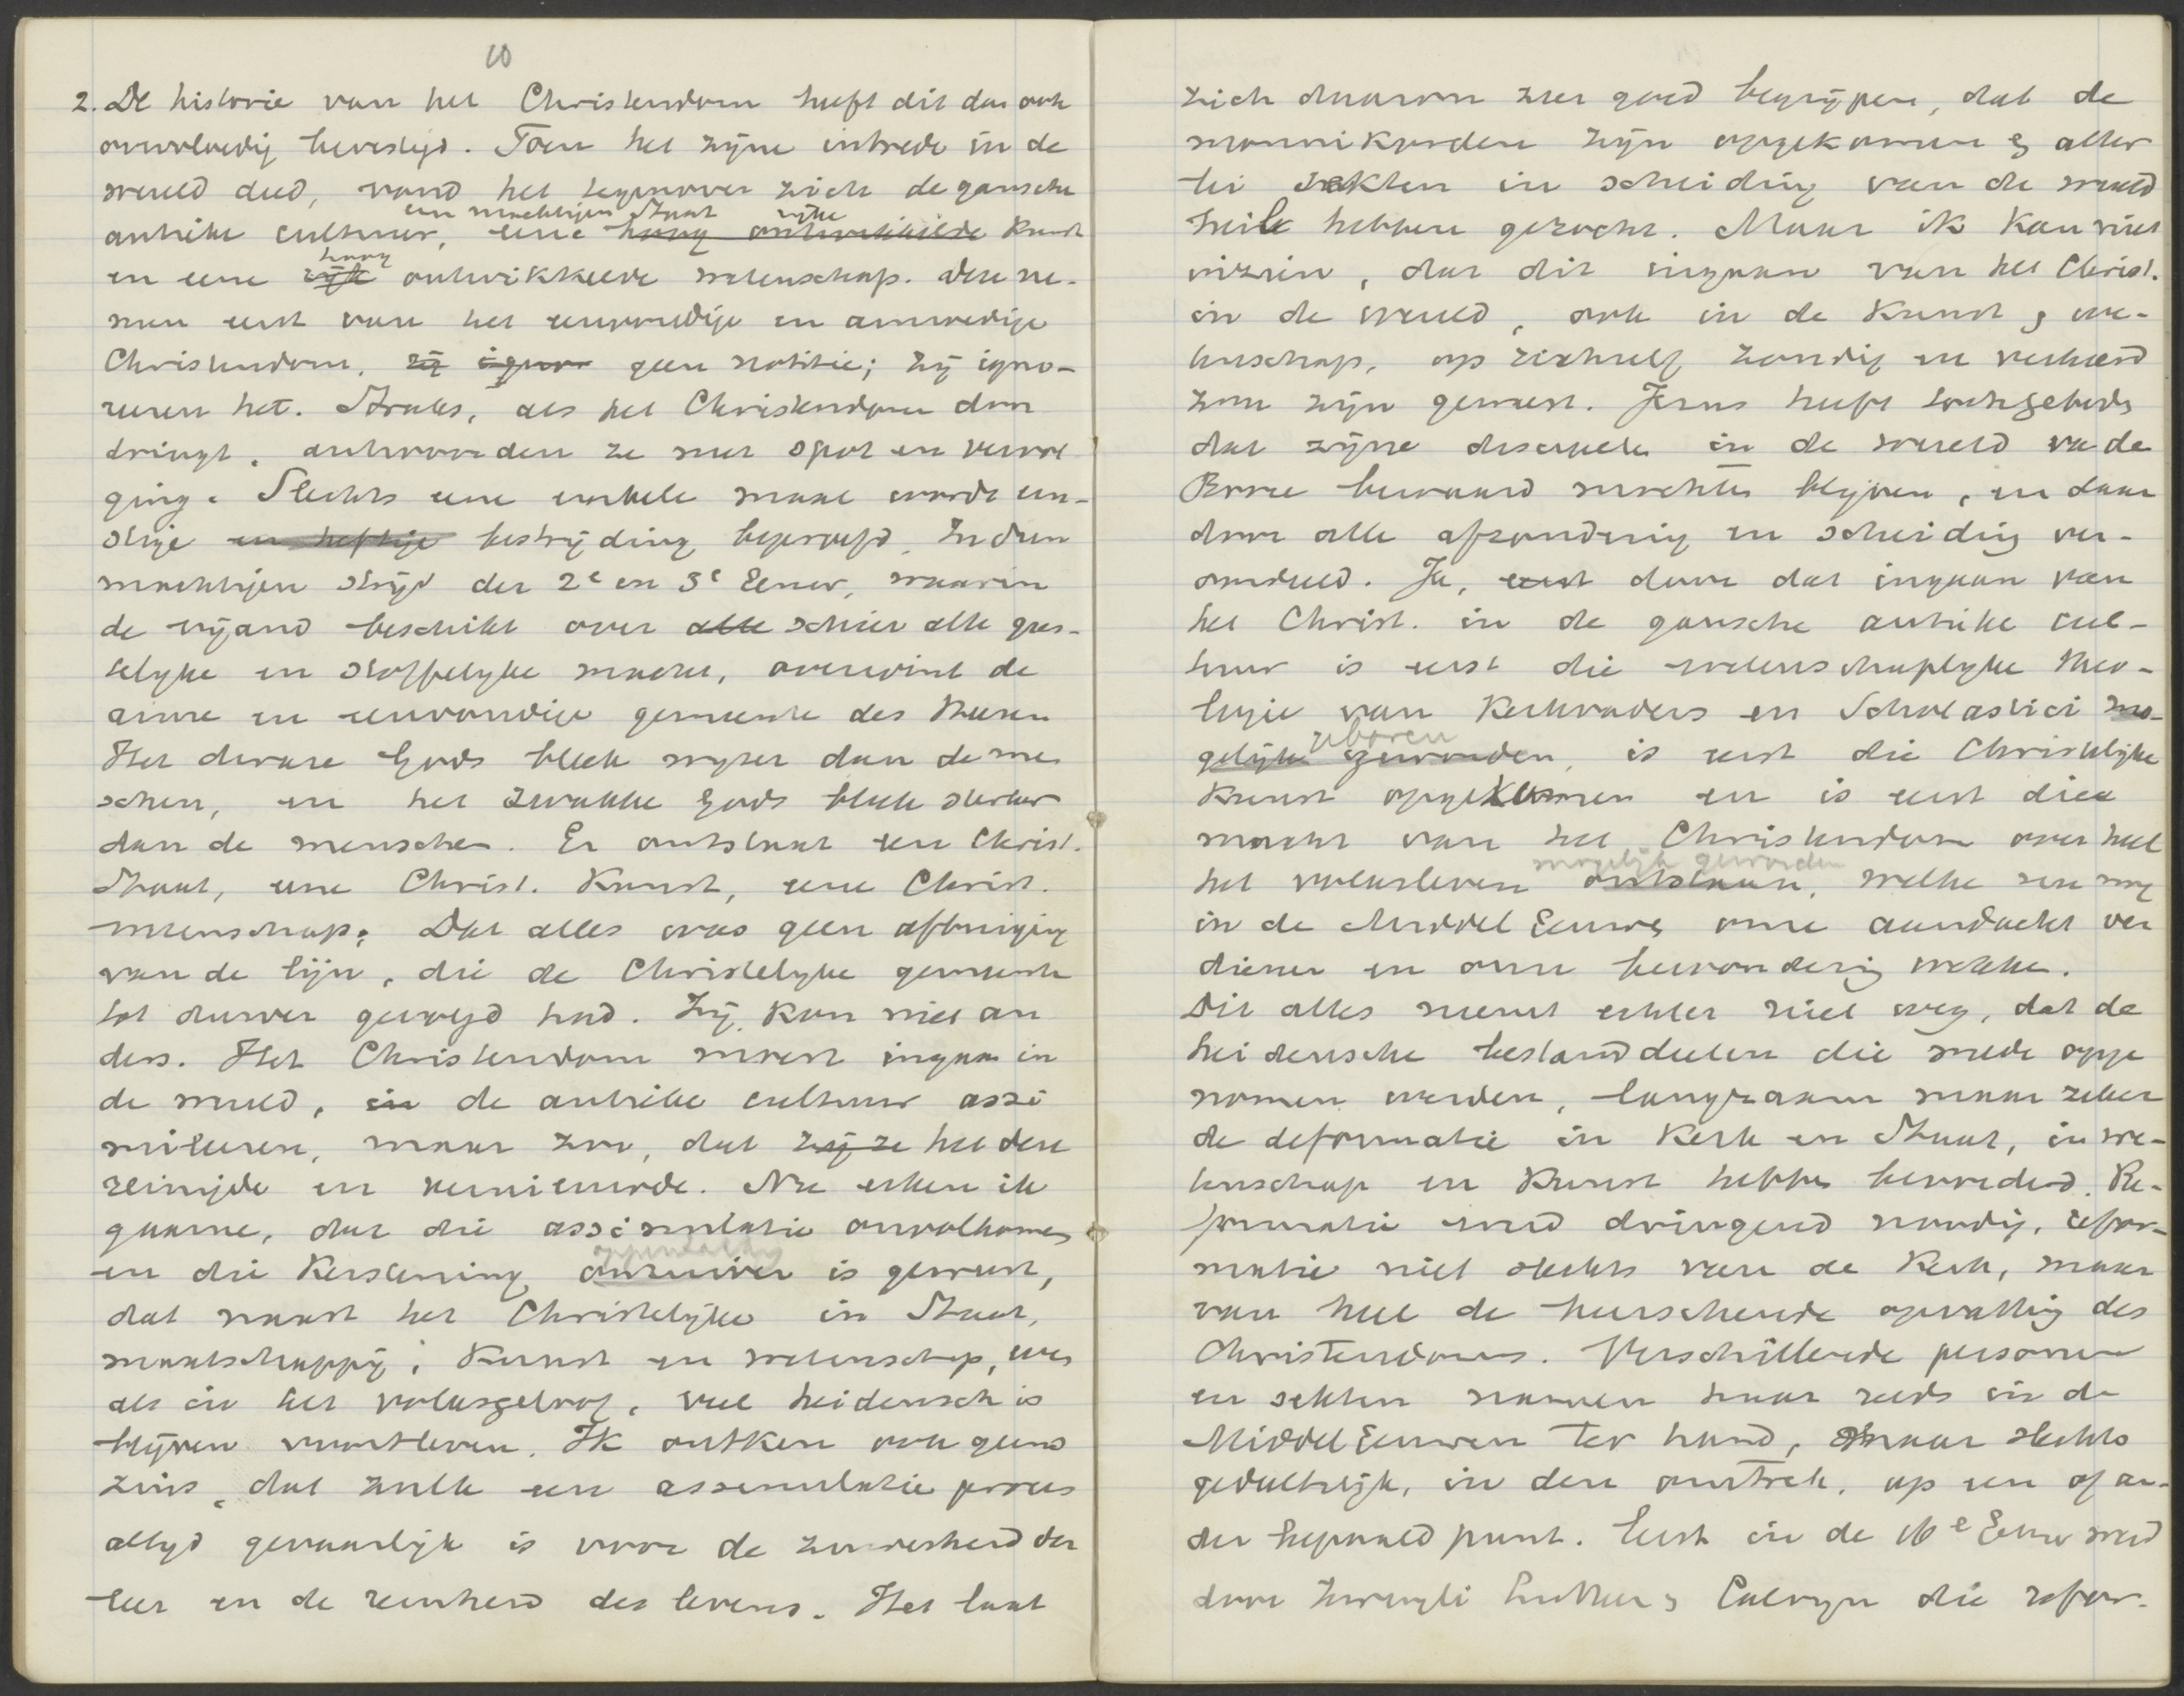 10
2. De historie van het Christendom heeft dit dan ook
overvloedig bevestigd. Toen het zijne intrede in de
wereld deed, vond het tegenover zich de gansche
een machtigen Staat rijke
antieke cultuur, eene hoog ontwikkelde Kunst
hoog
en eene rijke ontwikkelde wetenschap. Deze ne-
men eerst van het eenvoudige en armoedige
Christendom, zij ignor geen notitie; zij igno-
reeren het. Straks, als het Christendom door
dringt, antwoorden ze met spot en vervol
ging. Slechts eene enkele maal wordt ern-
stige en heftige bestrijding beproefd. In den
machtigen strijd der 2e en 3e Eeuw, waarin
de vijand beschikt over alle schier alle gees-
telijke en stoffelijke macht, overwint de
arme en eenvoudige gemeente des Heeren
Het dwaze Gods bleek wijzer dan de men
schen, en het zwakke Gods bleek sterker
dan de menschen. Er ontstaat een Christ.
Staat, eene Christ. Kunst, eene Christ.
wetenschap; Dat alles was geen afbuiging
van de lijn, die de Christelijke gemeente
tot dusver gevolgd had. Zij kon niet an
ders. Het Christendom moest ingaan in
de wereld, in de antieke cultuur assi
mileeren, maar zoo, dat zij ze het deze
reinigde en vernieuwde. Nu erken ik
gaarne, dat die assimilatie onvolkomen
oppervlakkig
en die Kerstening onzuiver is geweest,
dat naast het Christelijke in Staat,
maatschappij, Kunst en wetenschap, even
als in het volksgeloof, veel heidensch is
blijven voortleven. Ik ontken ook geens
zins, dat zulk een assimilatie proces
altijd gevaarlijk is voor de zuiverheid der
leer en de reinheid des levens. Het laat
zich daarom zeer goed begrijpen, dat de
monnikorden zijn opgekomen & aller
lei sekten in scheiding van de wereld
heil hebben gezocht. Maar ik kan niet
inzien, dat dit ingaan van het Christ.
in de wereld, ook in de Kunst & we-
tenschap, op zichzelf zondig en verkeerd
zou zijn geweest. Jezus heeft toch gebeden
dat zijne discipelen in de wereld van de
Booze bewaard mochten blijven, en daar
door alle afzondering en scheiding ver-
oordeeld. Ja, eerst door dat ingaan van
het Christ. in de gansche antieke cul-
tuur is eerst die wetenschaplijke theo-
logie van Kerkvaders en Scholastici mo-
geboren
gelijk geworden, is eerst die Christelijke
Kunst opgekomen en is eerst die
macht van het Christendom over heel
mogelijk geworden
het volksleven ontstaan, welke nu nog
in de Middel Eeuwen onze aandacht ver
dienen en onze bewondering wekken.
Dit alles neemt echter niet weg, dat de
heidensche bestanddeelen die mede opge
nomen werden, langzaam maar zeker
de deformatie in Kerk en Staat, in we-
tenschap en Kunst hebben bevorderd. Re-
formatie werd dringend noodig, refor-
matie niet slechts van de Kerk, maar
van heel de heerschende opvatting des
Christendoms. Verschillende personen
en sekten namen haar reeds in de
Middel Eeuwen ter hand, maar slechts
gedeeltelijk, in den omtrek, op een of an-
der bepaald punt. Eerst in de 16e Eeuw werd
door Zwingli Luther & Calvijn die refor-